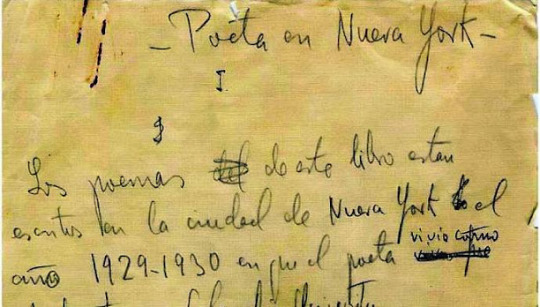 - Poeta en Nueva York -
I
Los poemas de este libro están
escritos en la ciudad de Nueva York el
año 1929-1930 en que el poeta vivió como